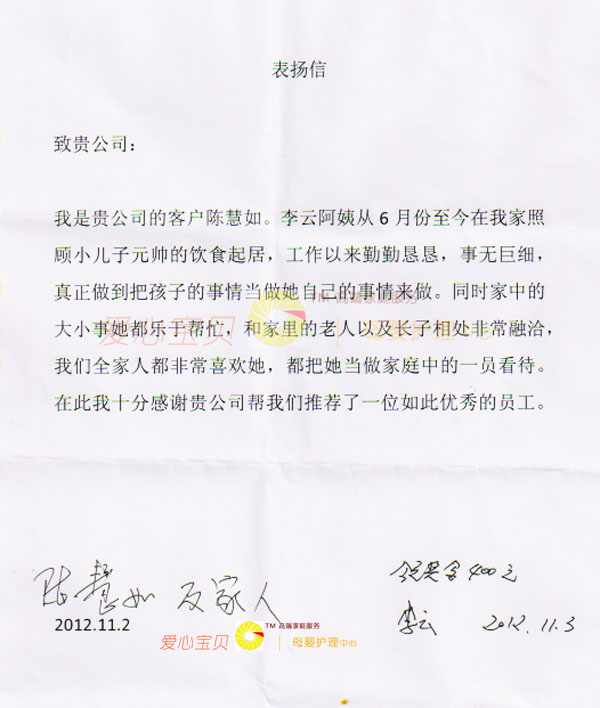 表扬信
致贵公司：
我是贵公司的客户陈慧如。李云阿姨从 6 月份至今在我家照
顾小儿子元帅的饮食起居，工作以来勤勤恳恳，事无巨细，
真正做到把孩子的事情当做她自己的事情来做。同时家中的
大小事她都乐于帮忙，和家里的老人以及长子相处非常融洽，
我们全家人都非常喜欢她，都把她当做家庭中的一员看待。
在此我十分感谢贵公司帮我们推荐了一位如此优秀的员工。
爱心宝贝 TM 高端家庭服务 母婴护理中心
陈慧如 及家人
2012.11.2
领奖金400元
李云 2012.11.3
爱心宝贝 TM 高端家庭服务 母婴护理中心